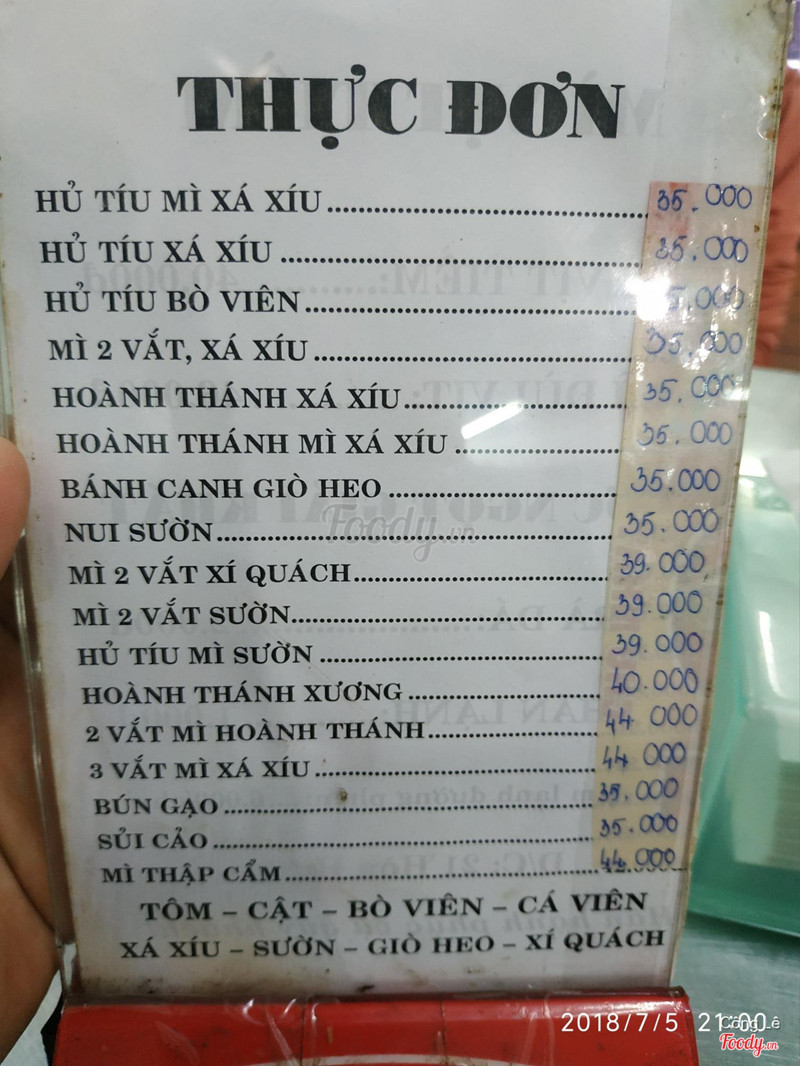 THỰC ĐƠN
HỦ TÍU MÌ XÁ XÍU 35.000
HỦ TÍU XÁ XÍU 35.000
HỦ TÍU BÒ VIÊN 35.000
MÌ 2 VẮT, XÁ XÍU 35.000
HOÀNH THÁNH XÁ XÍU 35.000
HOÀNH THÁNH MÌ XÁ XÍU 35.000
BÁNH CANH GIÒ HEO 35.000
NUI SƯỜN 35.000
MÌ 2 VẮT XÍ QUÁCH 39.000
MÌ 2 VẮT SƯỜN 39.000
HỦ TÍU MÌ SƯỜN 39.000
HOÀNH THÁNH XƯƠNG 40.000
2 VẮT MÌ HOÀNH THÁNH 44 000
3 VẮT MÌ XÁ XÍU 44 000
BÚN GẠO 35.000
SỦI CẢO 35.000
MÌ THẬP CẨM 44.000
TÔM – CẬT – BÒ VIÊN – CÁ VIÊN
XÁ XÍU – SƯỜN – GIÒ HEO – XÍ QUÁCH
Foody.vn
2018/7/5 21:00
Công Lê
Foody.vn